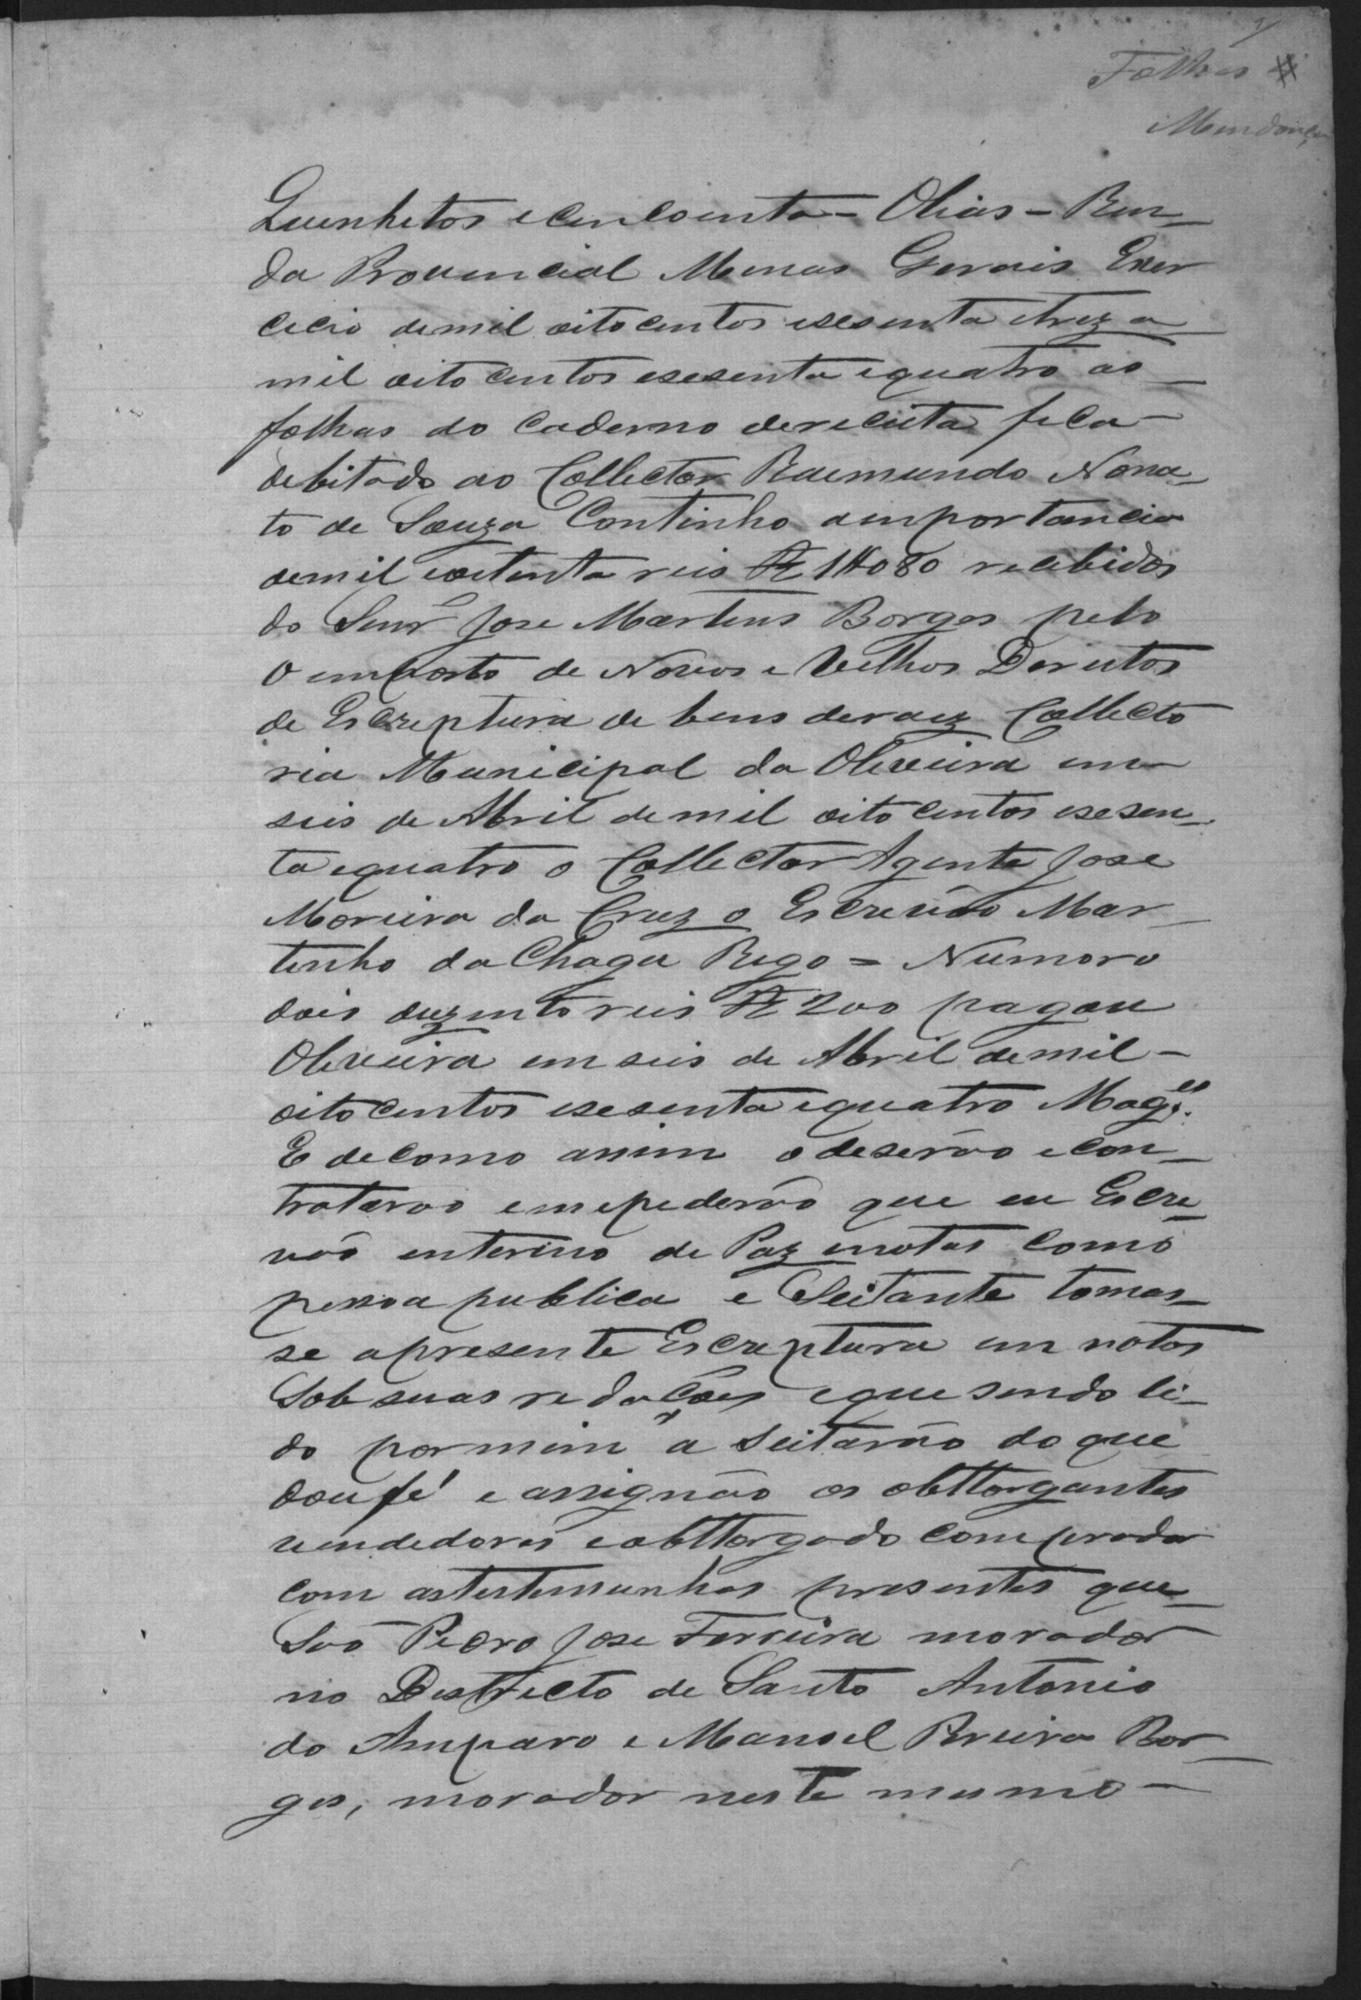 Folhas
Mendonça
Quenhetos e cencoenta = Olias = Ren-
da Provencial Menas Gerais Exer
cecio de mil oitocentos esesenta etrez a
mil oito centos esesenta equatro ao
folhas do caderno dereceita feca
debitado ao Collector Raemundo Nona-
to de Souza Continho aemportancia
demil eoetenta reis R 1#080 recebidos
do Senr Jose Martens Borges pelo
o emporto de Novos e Velhos Dereitos
de Escreptura de bens deraez Collecto
ria Municipal da Oleveira em
seis de Abril demil oito centos esesen-
ta equatro o Collector Agente Jose
Moreira da Cruz o Escrevão Mar-
tenho da Chaga Rego = Numero
dois duzento reis R 200 pagou
Oleveira em seis de Abril demil
oito centos esesenta equatro Mag.es
E decomo assim o deserão e con-
tratarão emepederão que eu Escre-
vão enterino de Paz enotas como
pessoa publica e Seitante tomas-
se apresente Escreptura em notas
Sob suas redações eque sendo li-
do por mim a Seitarão do que
dou fé e assignão os obttorgantes
vendedores eobttorgado comprador
com astestemunhas presentes que
São Pedro Jose Ferreira morador
no Destrecto de Santo Antonio
do Amparo e Manoel Pereira Bor-
ges, morador neste mesmo